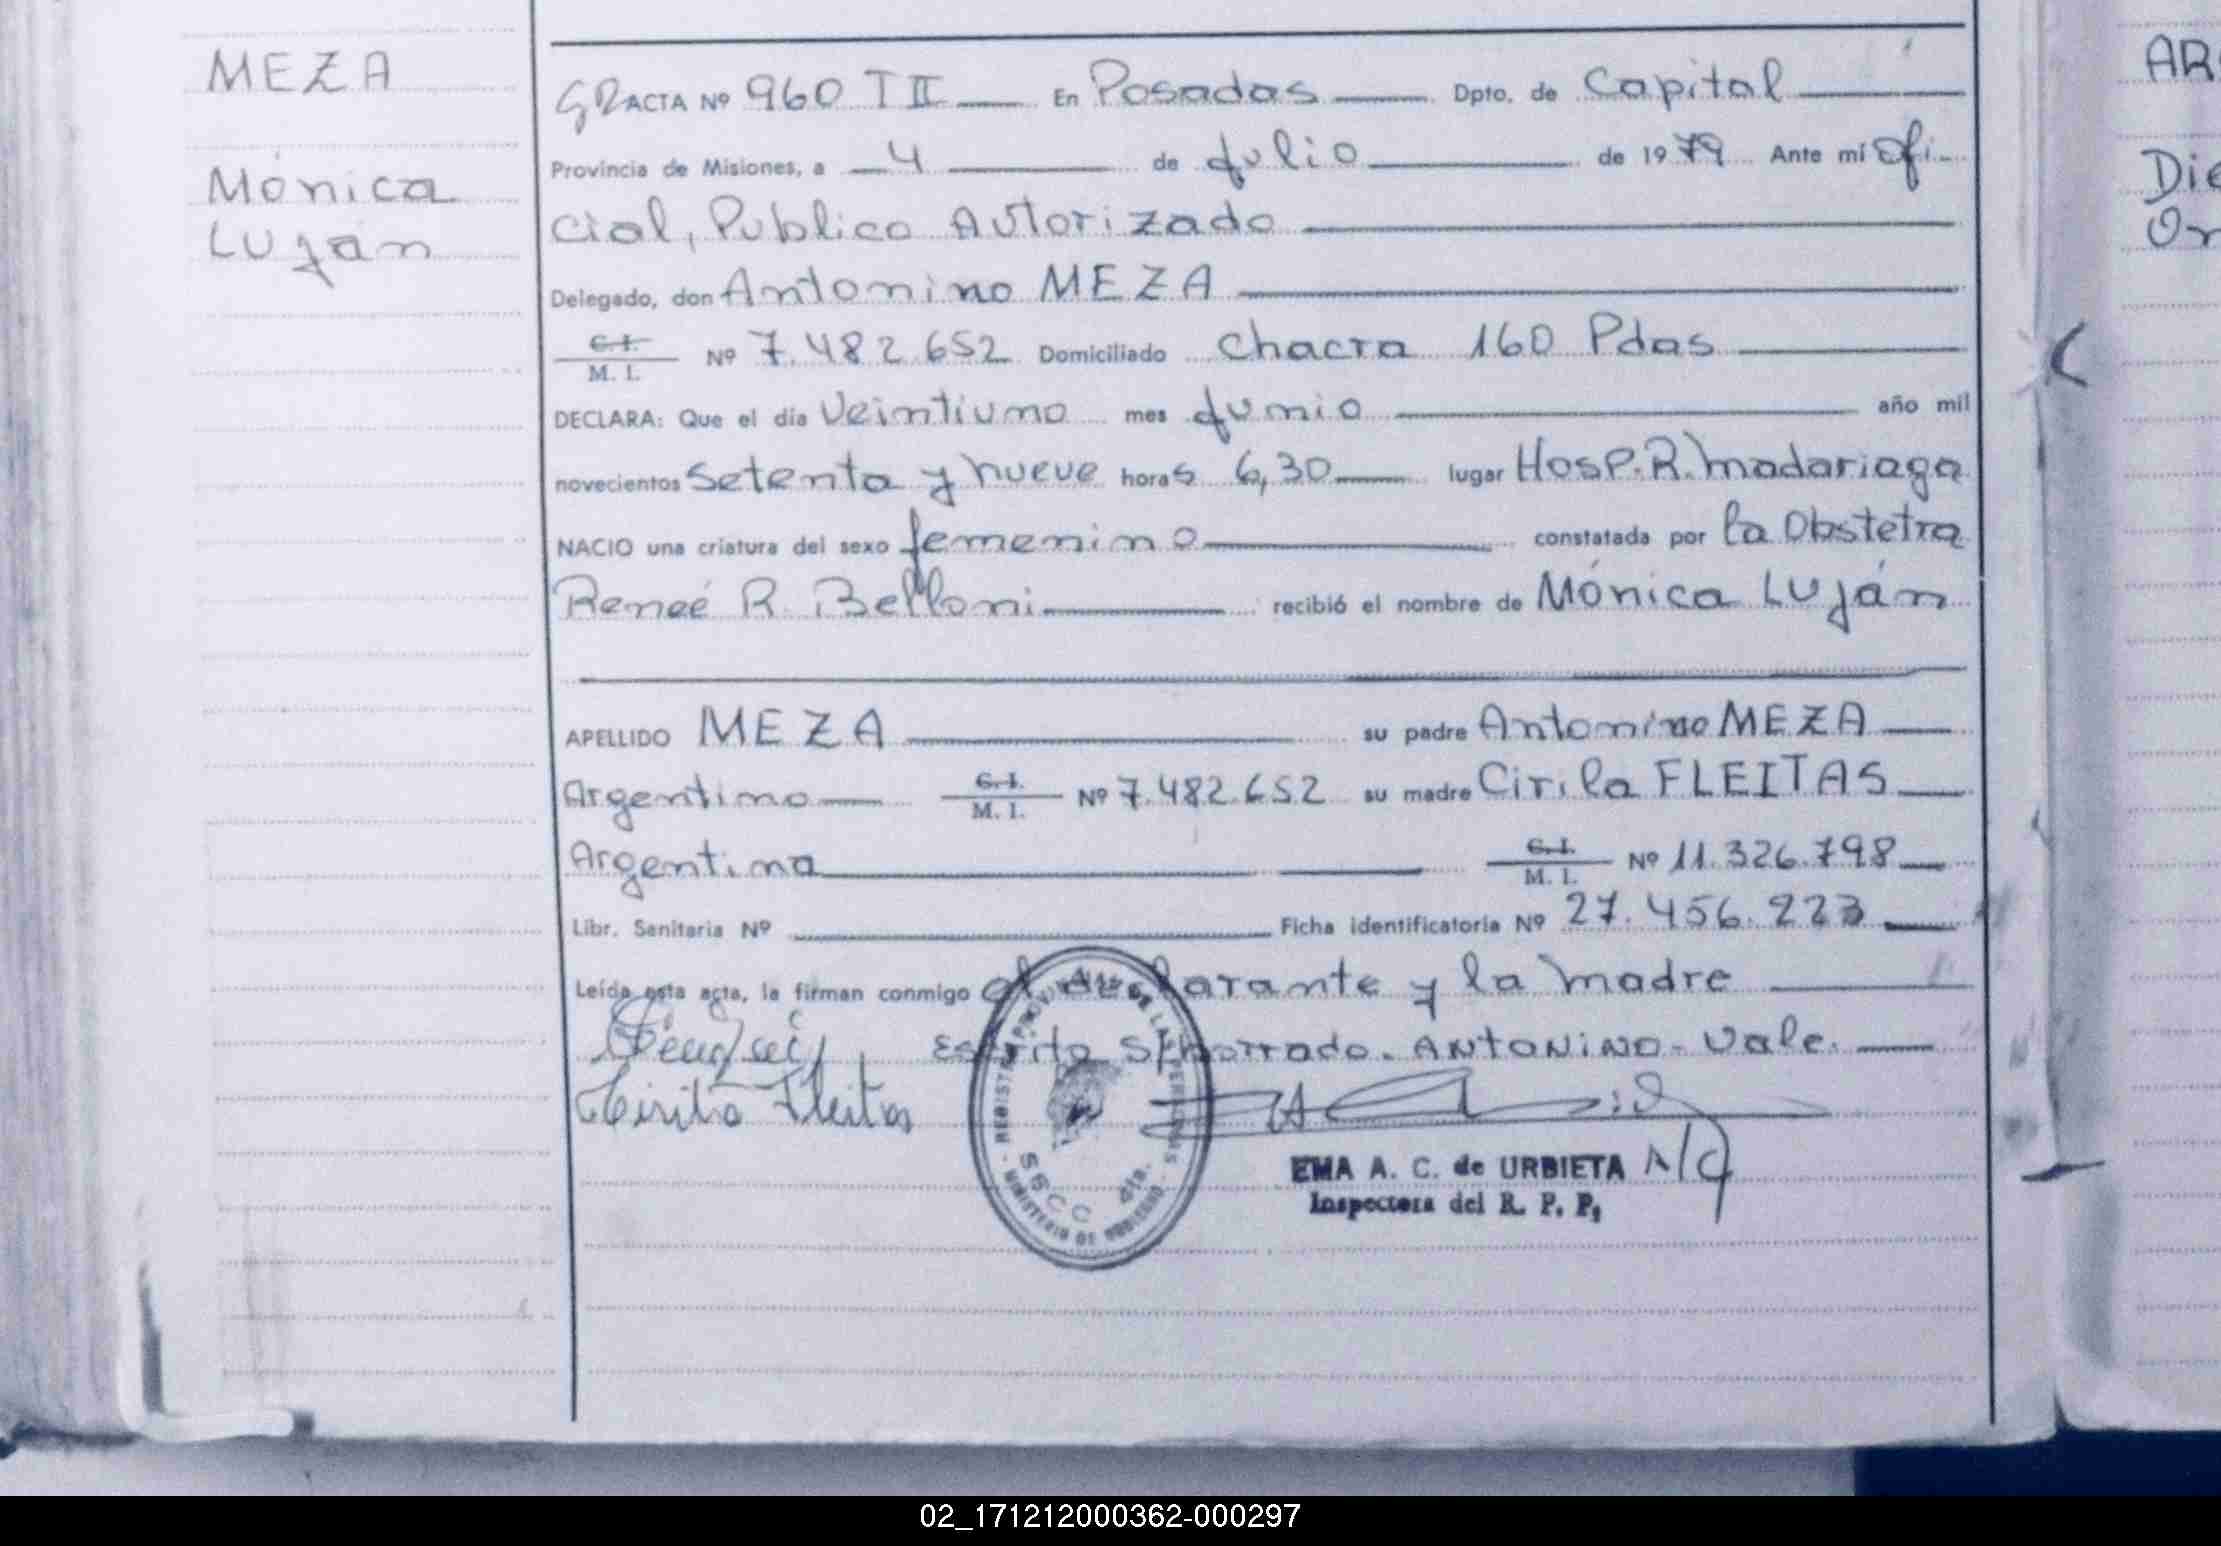 MEZA
Mónica
Luján
ACTA Nº 960 T II En Posadas Dpto. de Capital
Provincia de Misiones, a 4 de Julio de 1979 Ante mí Ofi-
cial, Publico Autorizado
Delegado, don Antonino MEZA
C. I.
M. I. Nº 7.482.652 Domiciliado Chacra 160 Pdas
DECLARA: Que el día Veintiuno mes Junio año mil
novecientos setenta y nueve horas 6,30 lugar Hosp. R. Madariaga
NACIO una criatura del sexo femenino constatada por la Obstetra
Reneé R. Belloni recibió el nombre de Mónica Luján
APELLIDO MEZA su padre Antonino MEZA
Argentino C. I. M. I. Nº 7.482.652 su madre Cirila FLEITAS
Argentina C. I. M. I. Nº 11.326.798
Libr. Sanitaria Nº Ficha identificatoria Nº 27.456.223
Leída esta acta, la firman conmigo el declarante y la madre
Escrito S/borrado. ANTONINO - Vale.
Cirila Fleitas
EMA A. C. de URBIETA A/C
Inspectora del R. P. P.
MINISTERIO DE GOBIERNO
AR
Die
Or
02_171212000362-000297